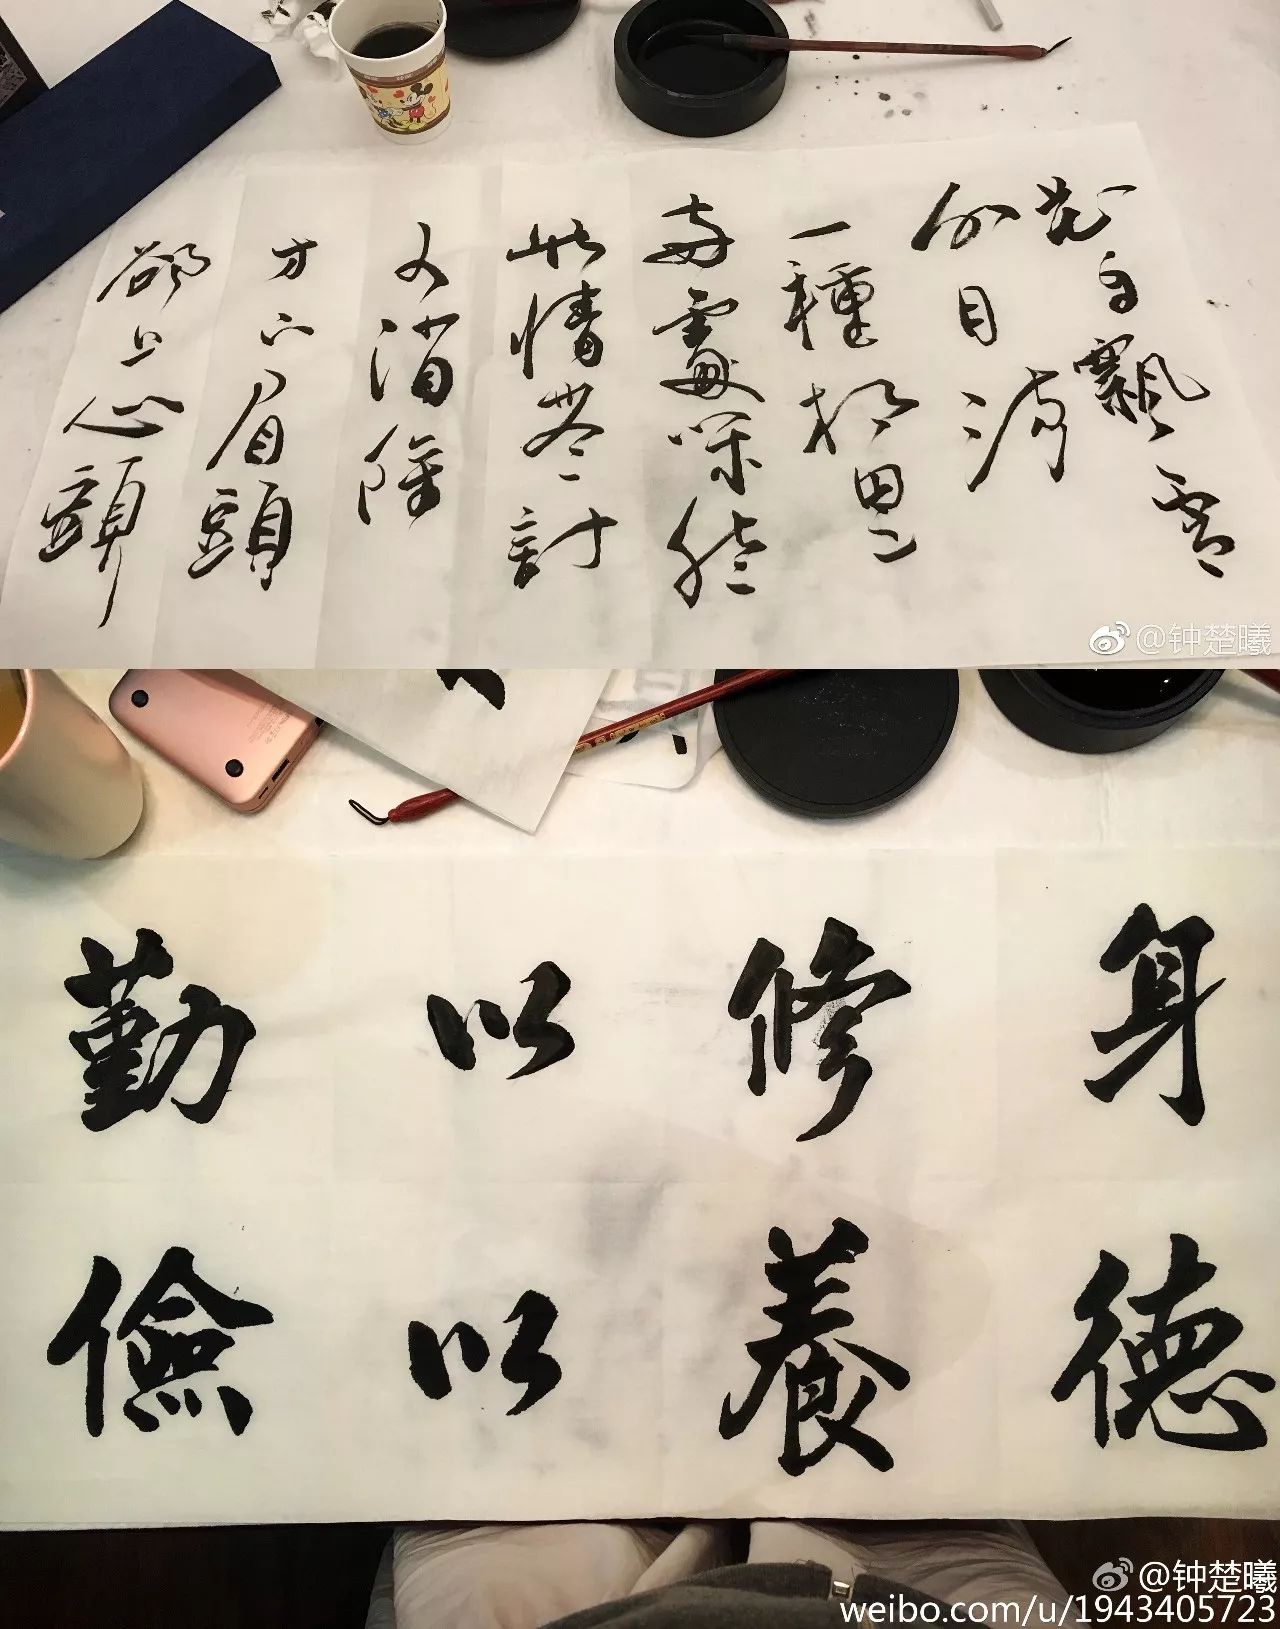 花自飄零
水自流
一種相思
兩處閒愁
此情無計
可消除
才下眉頭
卻上心頭
@钟楚曦
勤以修身
儉以養德
@钟楚曦
weibo.com/u/1943405723